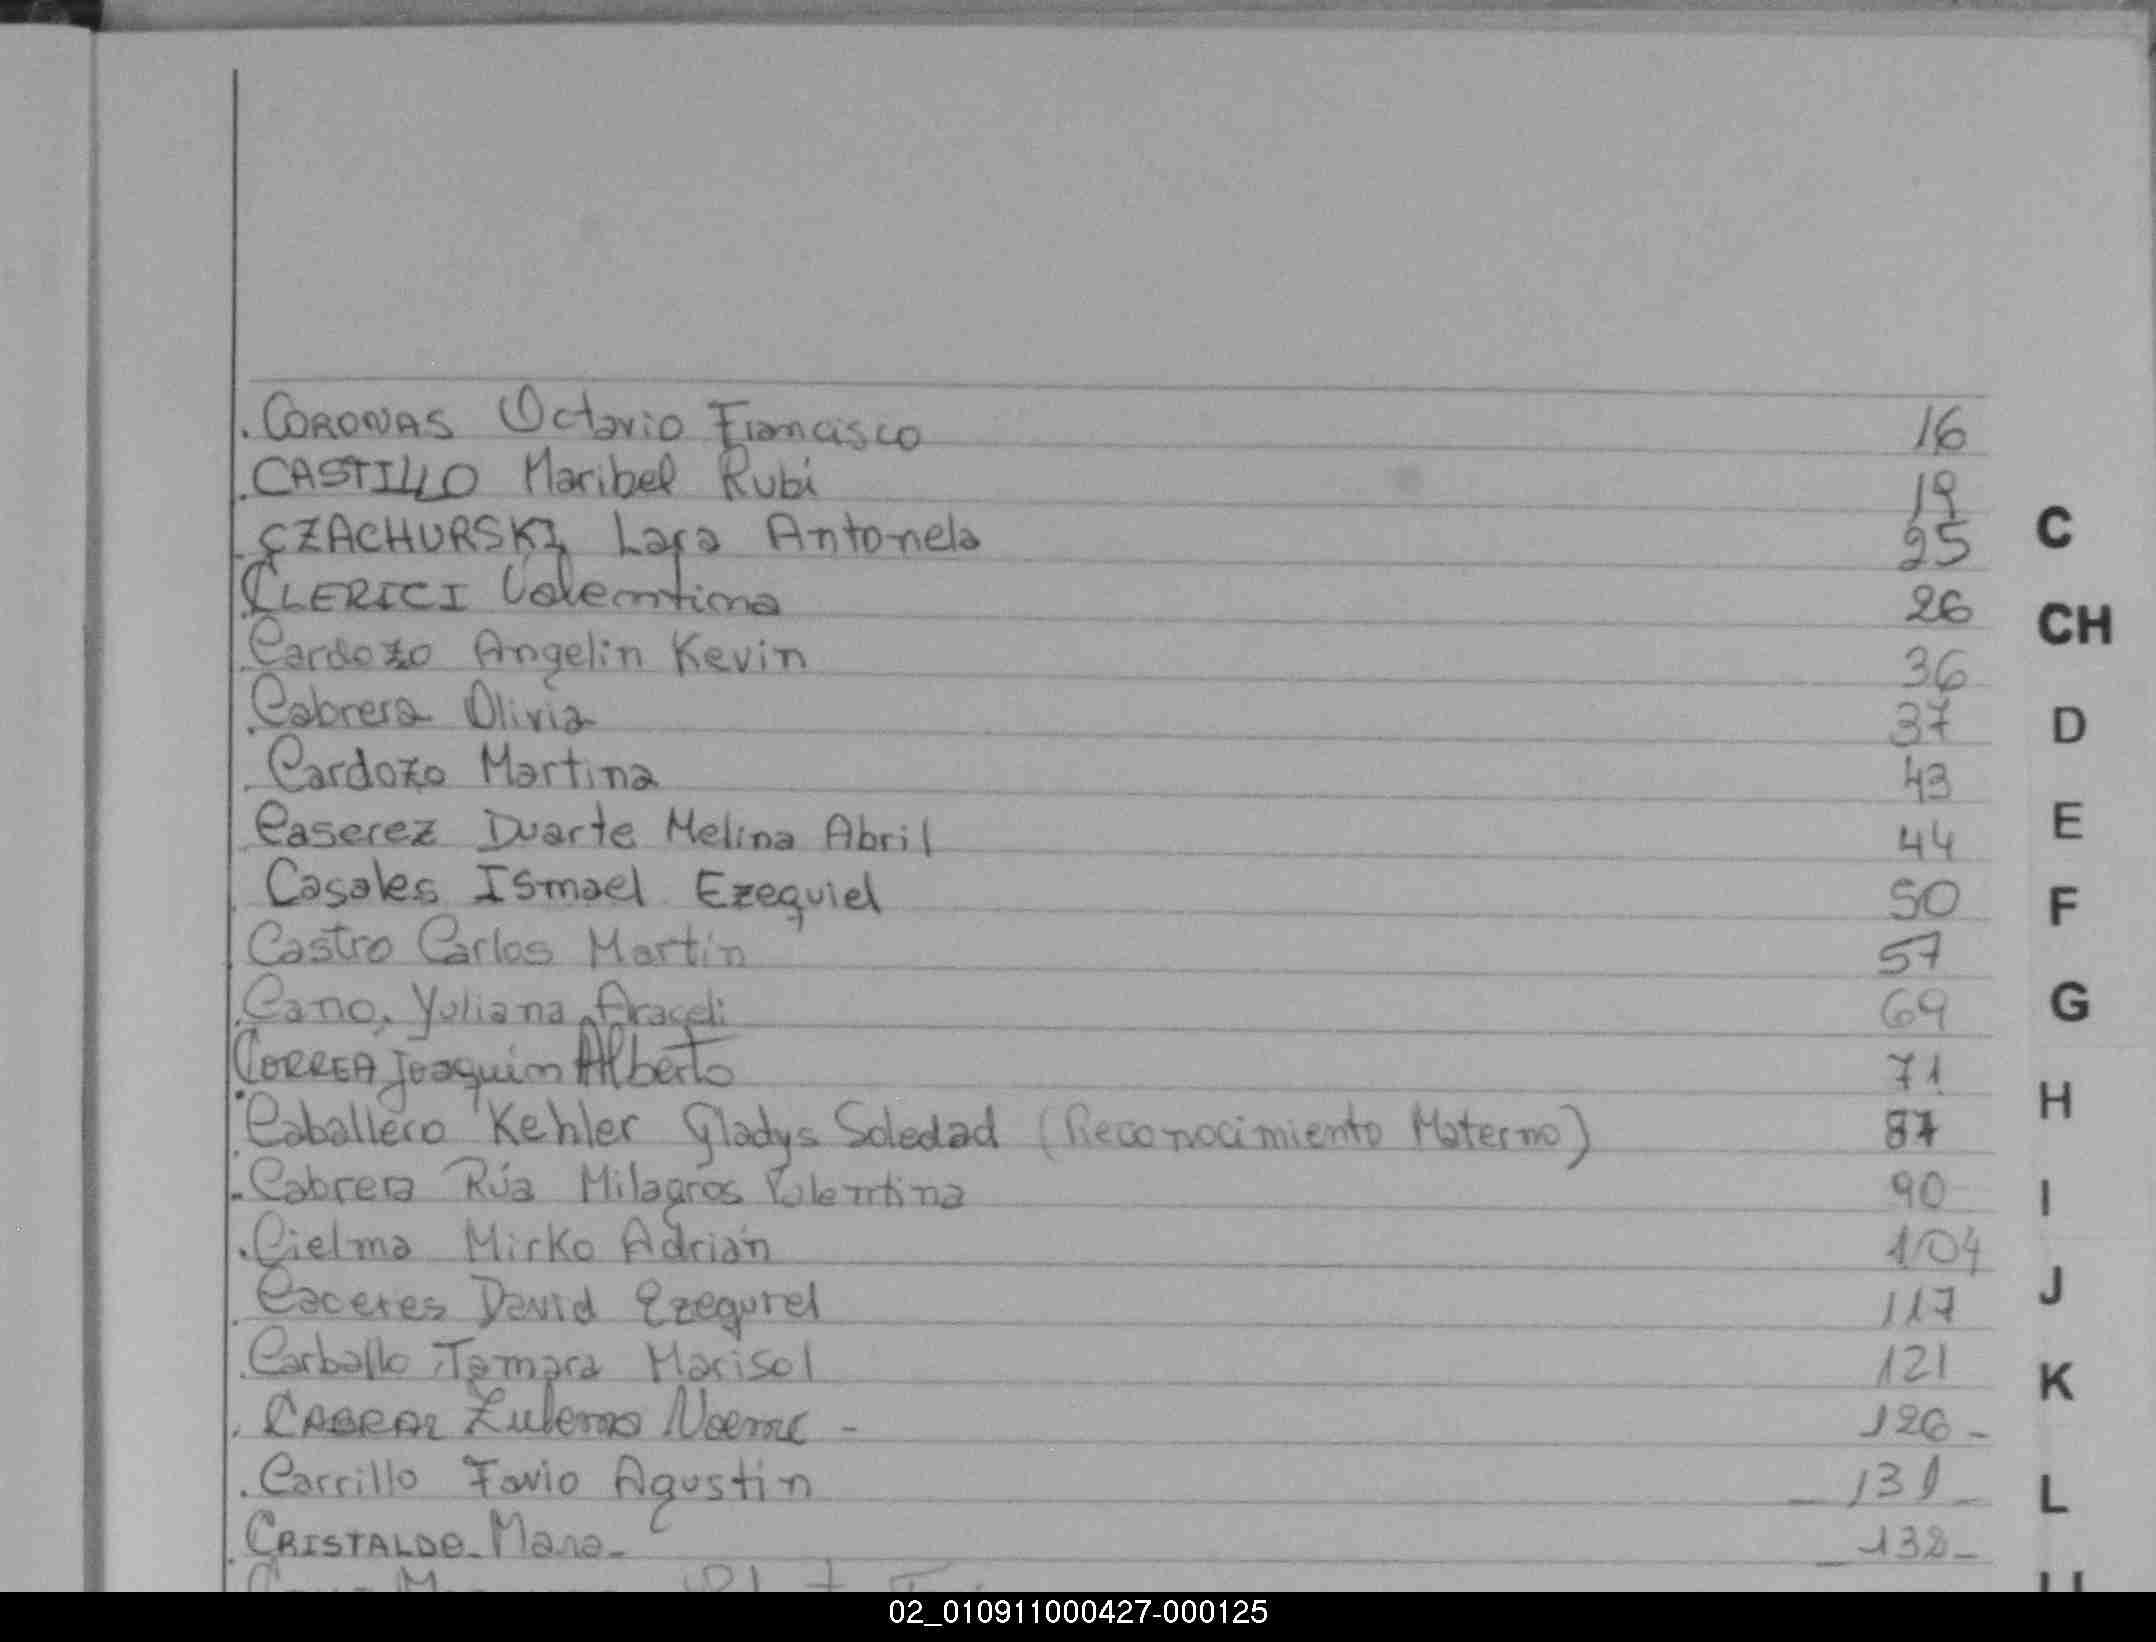 . CORONAS Octavio Francisco 16
. CASTILLO Maribel Rubi 19
. CZACHURSKI Lara Antonela 25
CLERICI Valentina 26
. Cardozo Angelin Kevin 36
. Cabrera Olivia 37
. Cardozo Martina 43
. Caserez Duarte Melina Abril 44
. Casales Ismael Ezequiel 50
. Castro Carlos Martin 57
. Cano, Yuliana Araceli 69
CORREA Joaquim Alberto 71
. Caballero Kehler Gladys Soledad (Reconocimiento Materno) 87
. Cabrera Rúa Milagros Valentina 90
. Cielma Mirko Adrián 104
. Caceres David Ezequiel 117
. Carballo Tamara Marisol 121
. CABRAL Zulema Noemi - 126 -
. Carrillo Favio Agustin _ 131 _
. CRISTALDO - Mara - _ 132 -
C
CH
D
E
F
G
H
I
J
K
L
02_010911000427-000125